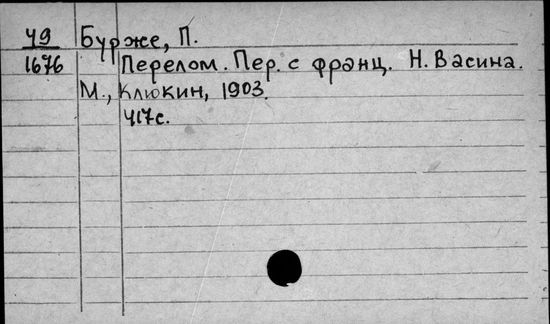 49 Бурже, П.
1676 Перелом. Пер. с франц. Н. Васина.
М., Клюкин, 1903.
417с.